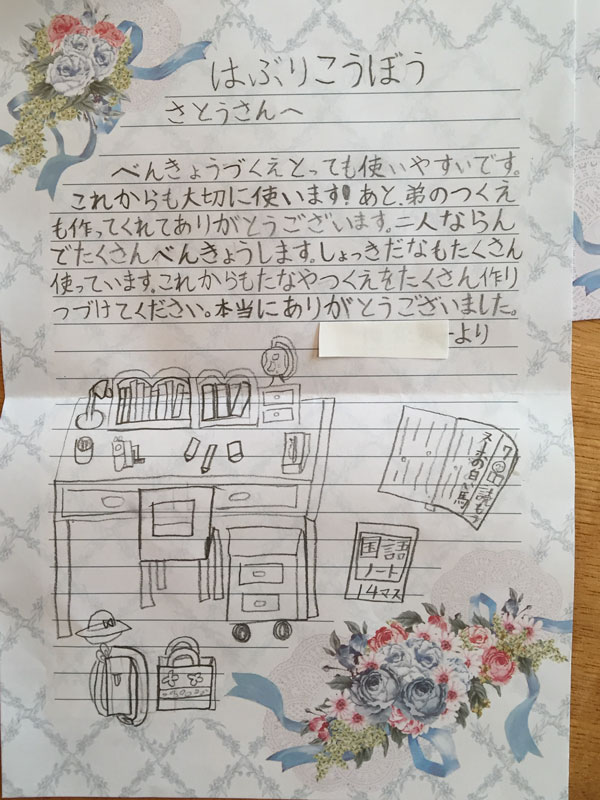 はぶりこうぼう
さとうさんへ
べんきょうづくえとっても使いやすいです。
これからも大切に使います!あと、弟のつくえ
も作ってくれてありがとうございます。二人ならん
でたくさんべんきょうします。しょっきだなもたくさん
使っています。これからもたなやつくえをたくさん作り
つづけてください。本当にありがとうございました。
より
スーホの白い馬
国語
ノート
14マス